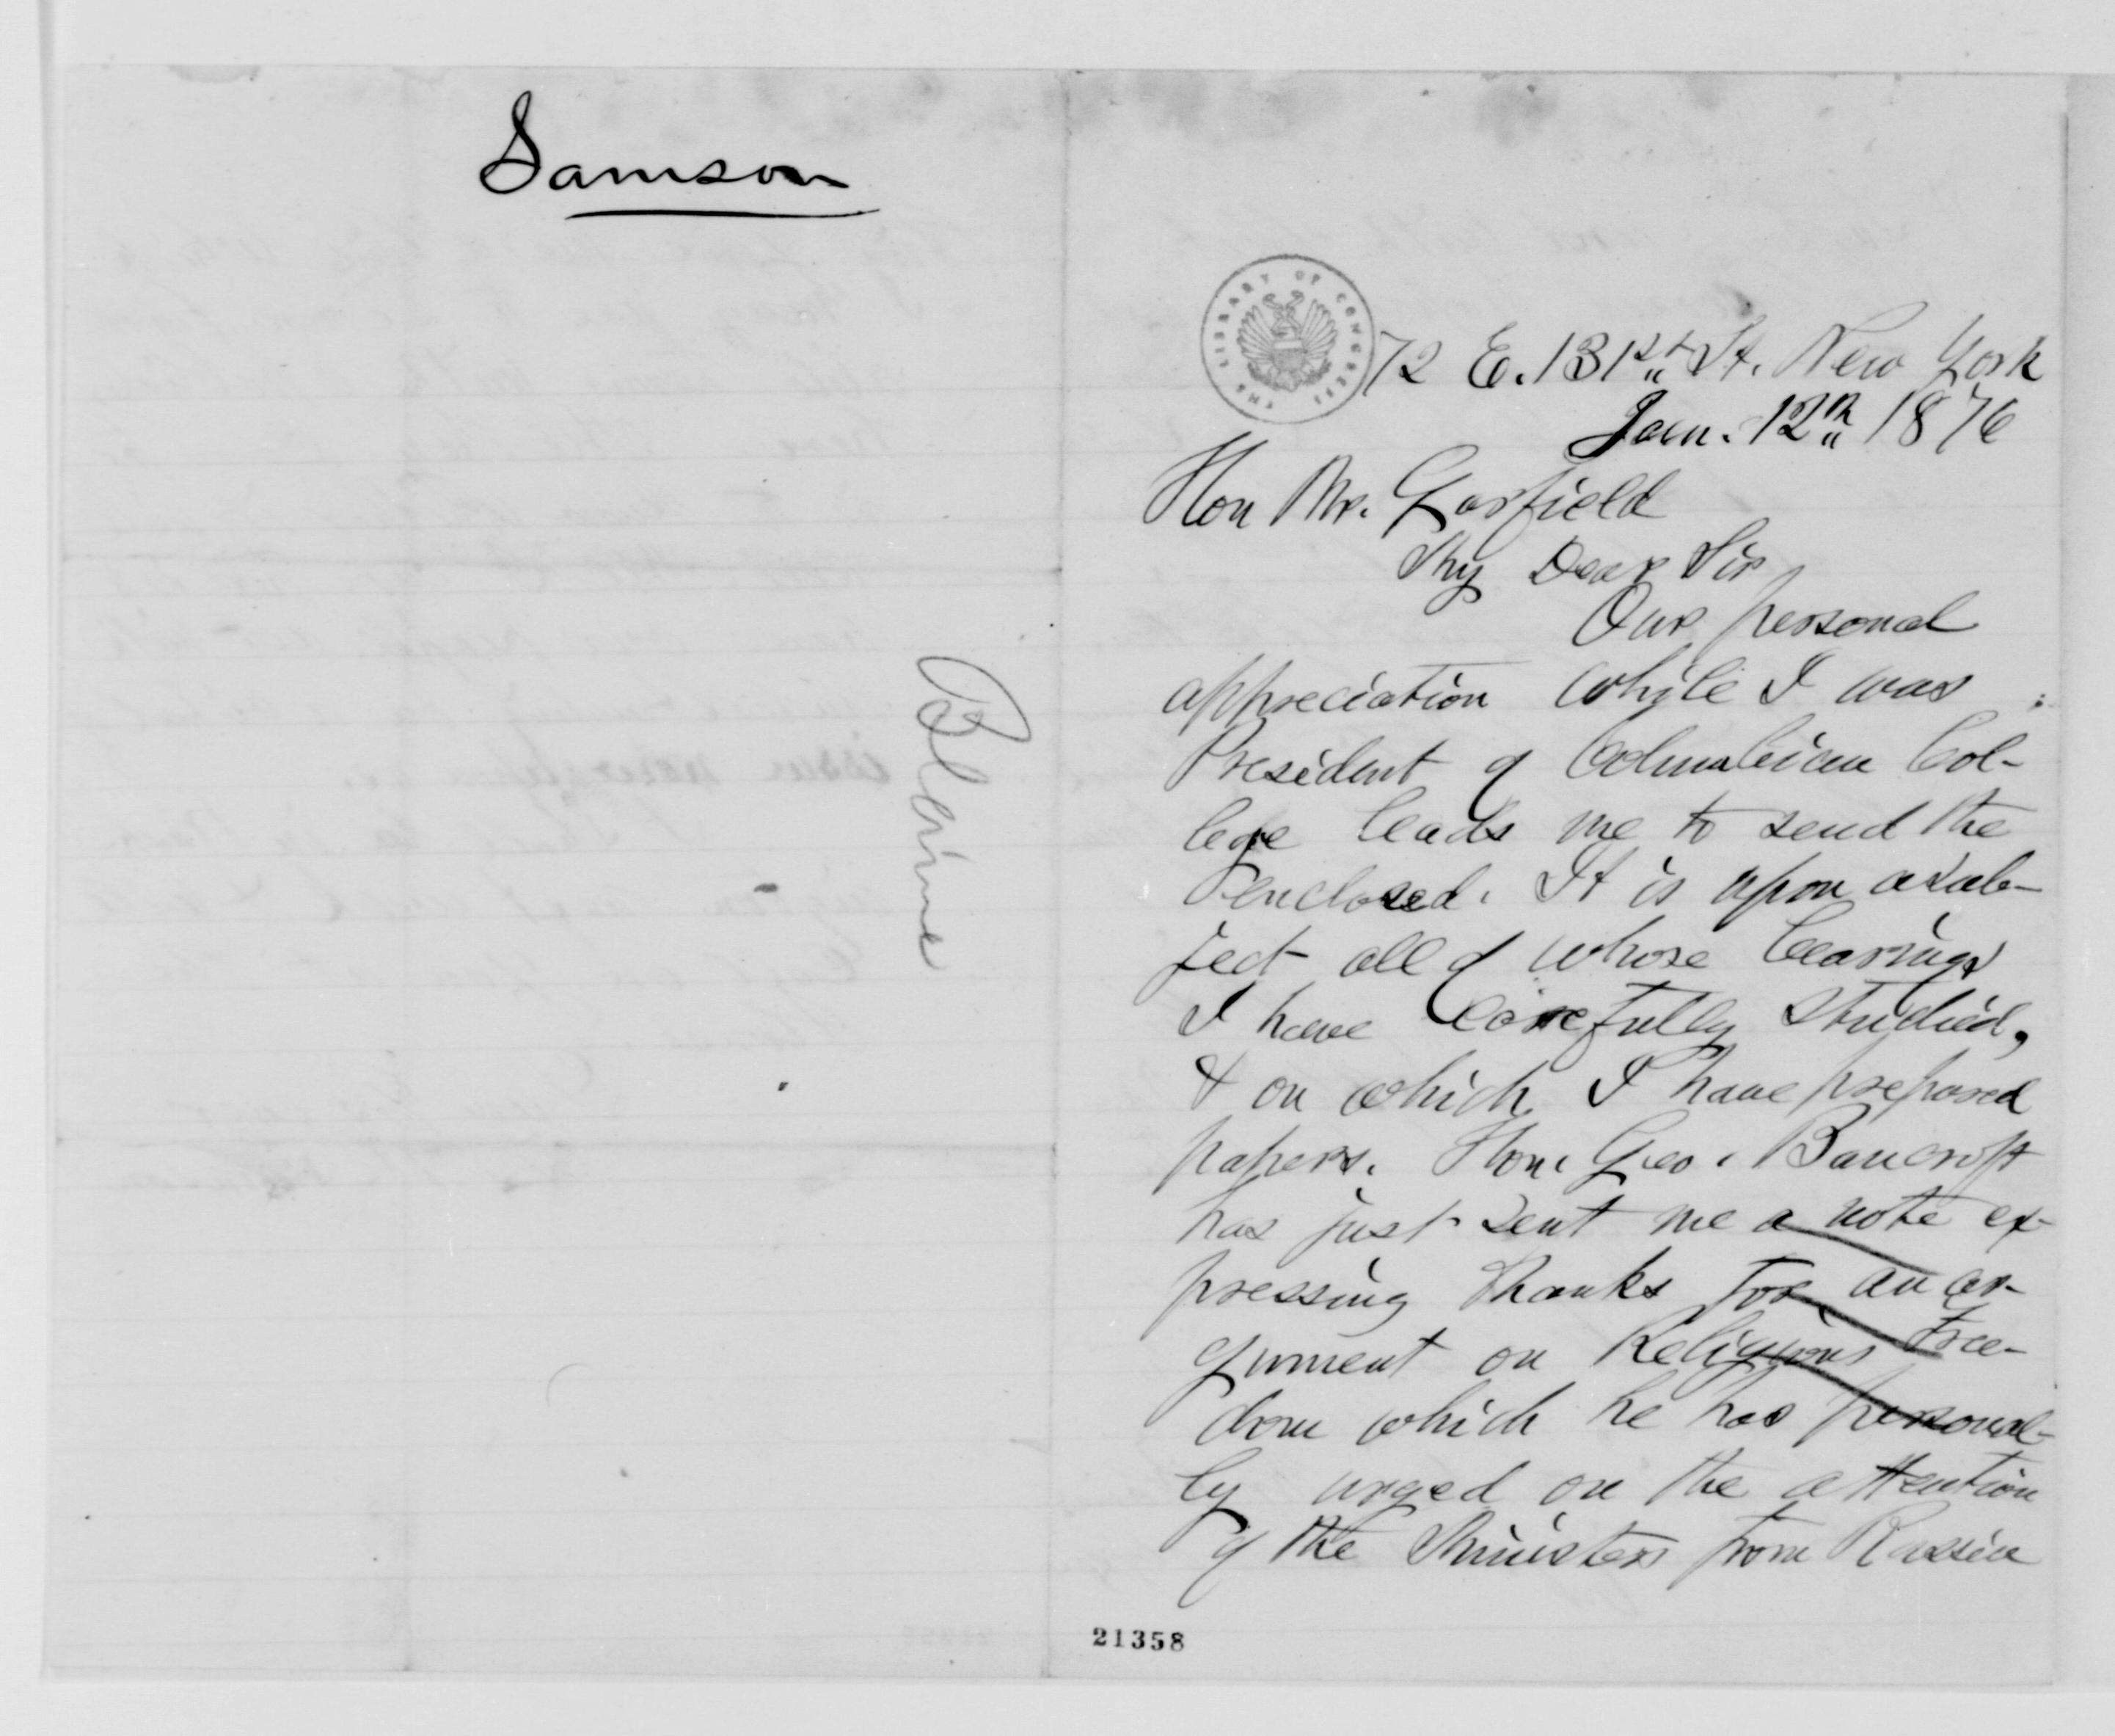 Samson
Blaine
THE LIBRARY OF CONGRESS
72 E. 131st St. New York
Jan. 12th 1876
Hon Mr. Garfield
My Dear Sir
Our personal
appreciation while I was
President of Columbian Col-
lege leads me to send the
enclosed. It is upon a sub-
ject all of whose bearings
I have carefully studied,
& on which I have prepared
papers. Hon. Geo. Bancroft
has just sent me a note ex-
pressing thanks for an ar-
gument on Religious Free-
dom which he has personal-
ly urged on the attention
of the Minister from Russia
21358